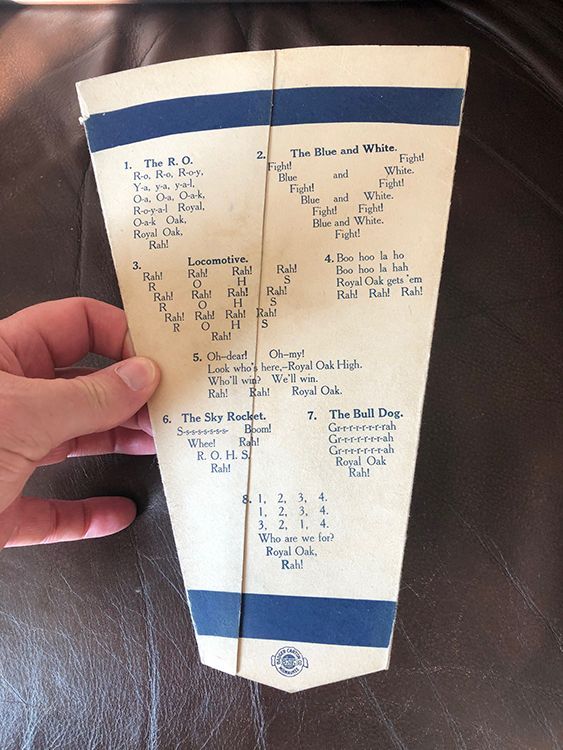 1. The R. O.
R-o, R-o, R-o-y,
Y-a, y-a, y-a-l,
O-a, O-a, O-a-k,
R-o-y-a-l Royal,
O-a-k Oak,
Royal Oak,
Rah!
2. The Blue and White.
Fight! Fight!
Blue and White.
Fight! Fight!
Blue and White.
Fight! Fight!
Blue and White.
Fight!
3. Locomotive.
Rah! Rah! Rah! Rah!
R O H S
Rah! Rah! Rah! Rah!
R O H S
Rah! Rah! Rah! Rah!
R O H S
Rah!
4. Boo hoo la ho
Boo hoo la hah
Royal Oak gets 'em
Rah! Rah! Rah!
5. Oh-dear! Oh-my!
Look who's here,—Royal Oak High.
Who'll win? We'll win.
Rah! Rah! Royal Oak.
6. The Sky Rocket.
S-s-s-s-s-s-s- Boom!
Whee! Rah!
R. O. H. S.
Rah!
7. The Bull Dog.
Gr-r-r-r-r-r-rah
Gr-r-r-r-r-r-rah
Gr-r-r-r-r-r-rah
Royal Oak
Rah!
8. 1, 2, 3, 4.
1, 2, 3, 4.
3, 2, 1, 4.
Who are we for?
Royal Oak,
Rah!
MILWAUKEE